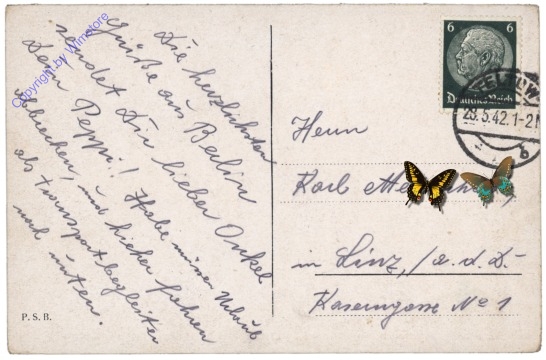 Die herzlichsten
Grüße aus Berlin
sendet Dir lieber Onkel
Dein Peppi! Habe meinen Urlaub
und hieher fahren
als Transportbegleiter
nach unten.
Copyright by Wimstore
P. S. B.
6 6
Deutsches Reich
TELTOW
23.5.42.1-2N
b
Herrn
Karl
in Linz, /a. d. D.
Kaserngasse No 1